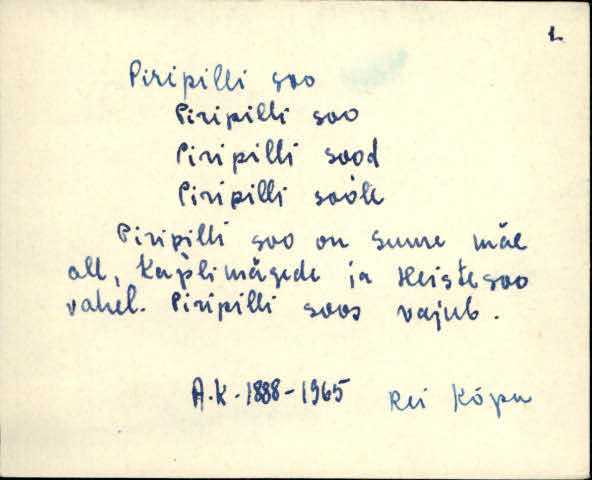 1.
Piripilli soo
Piripilli soo
Piripilli sood
Piripilli soole
Piripilli soo on suure mäe
all, Kaplimägede ja Heistesoo
vahel. Piripilli soos vajub.
A.K. 1888-1965 Rei Kõpu